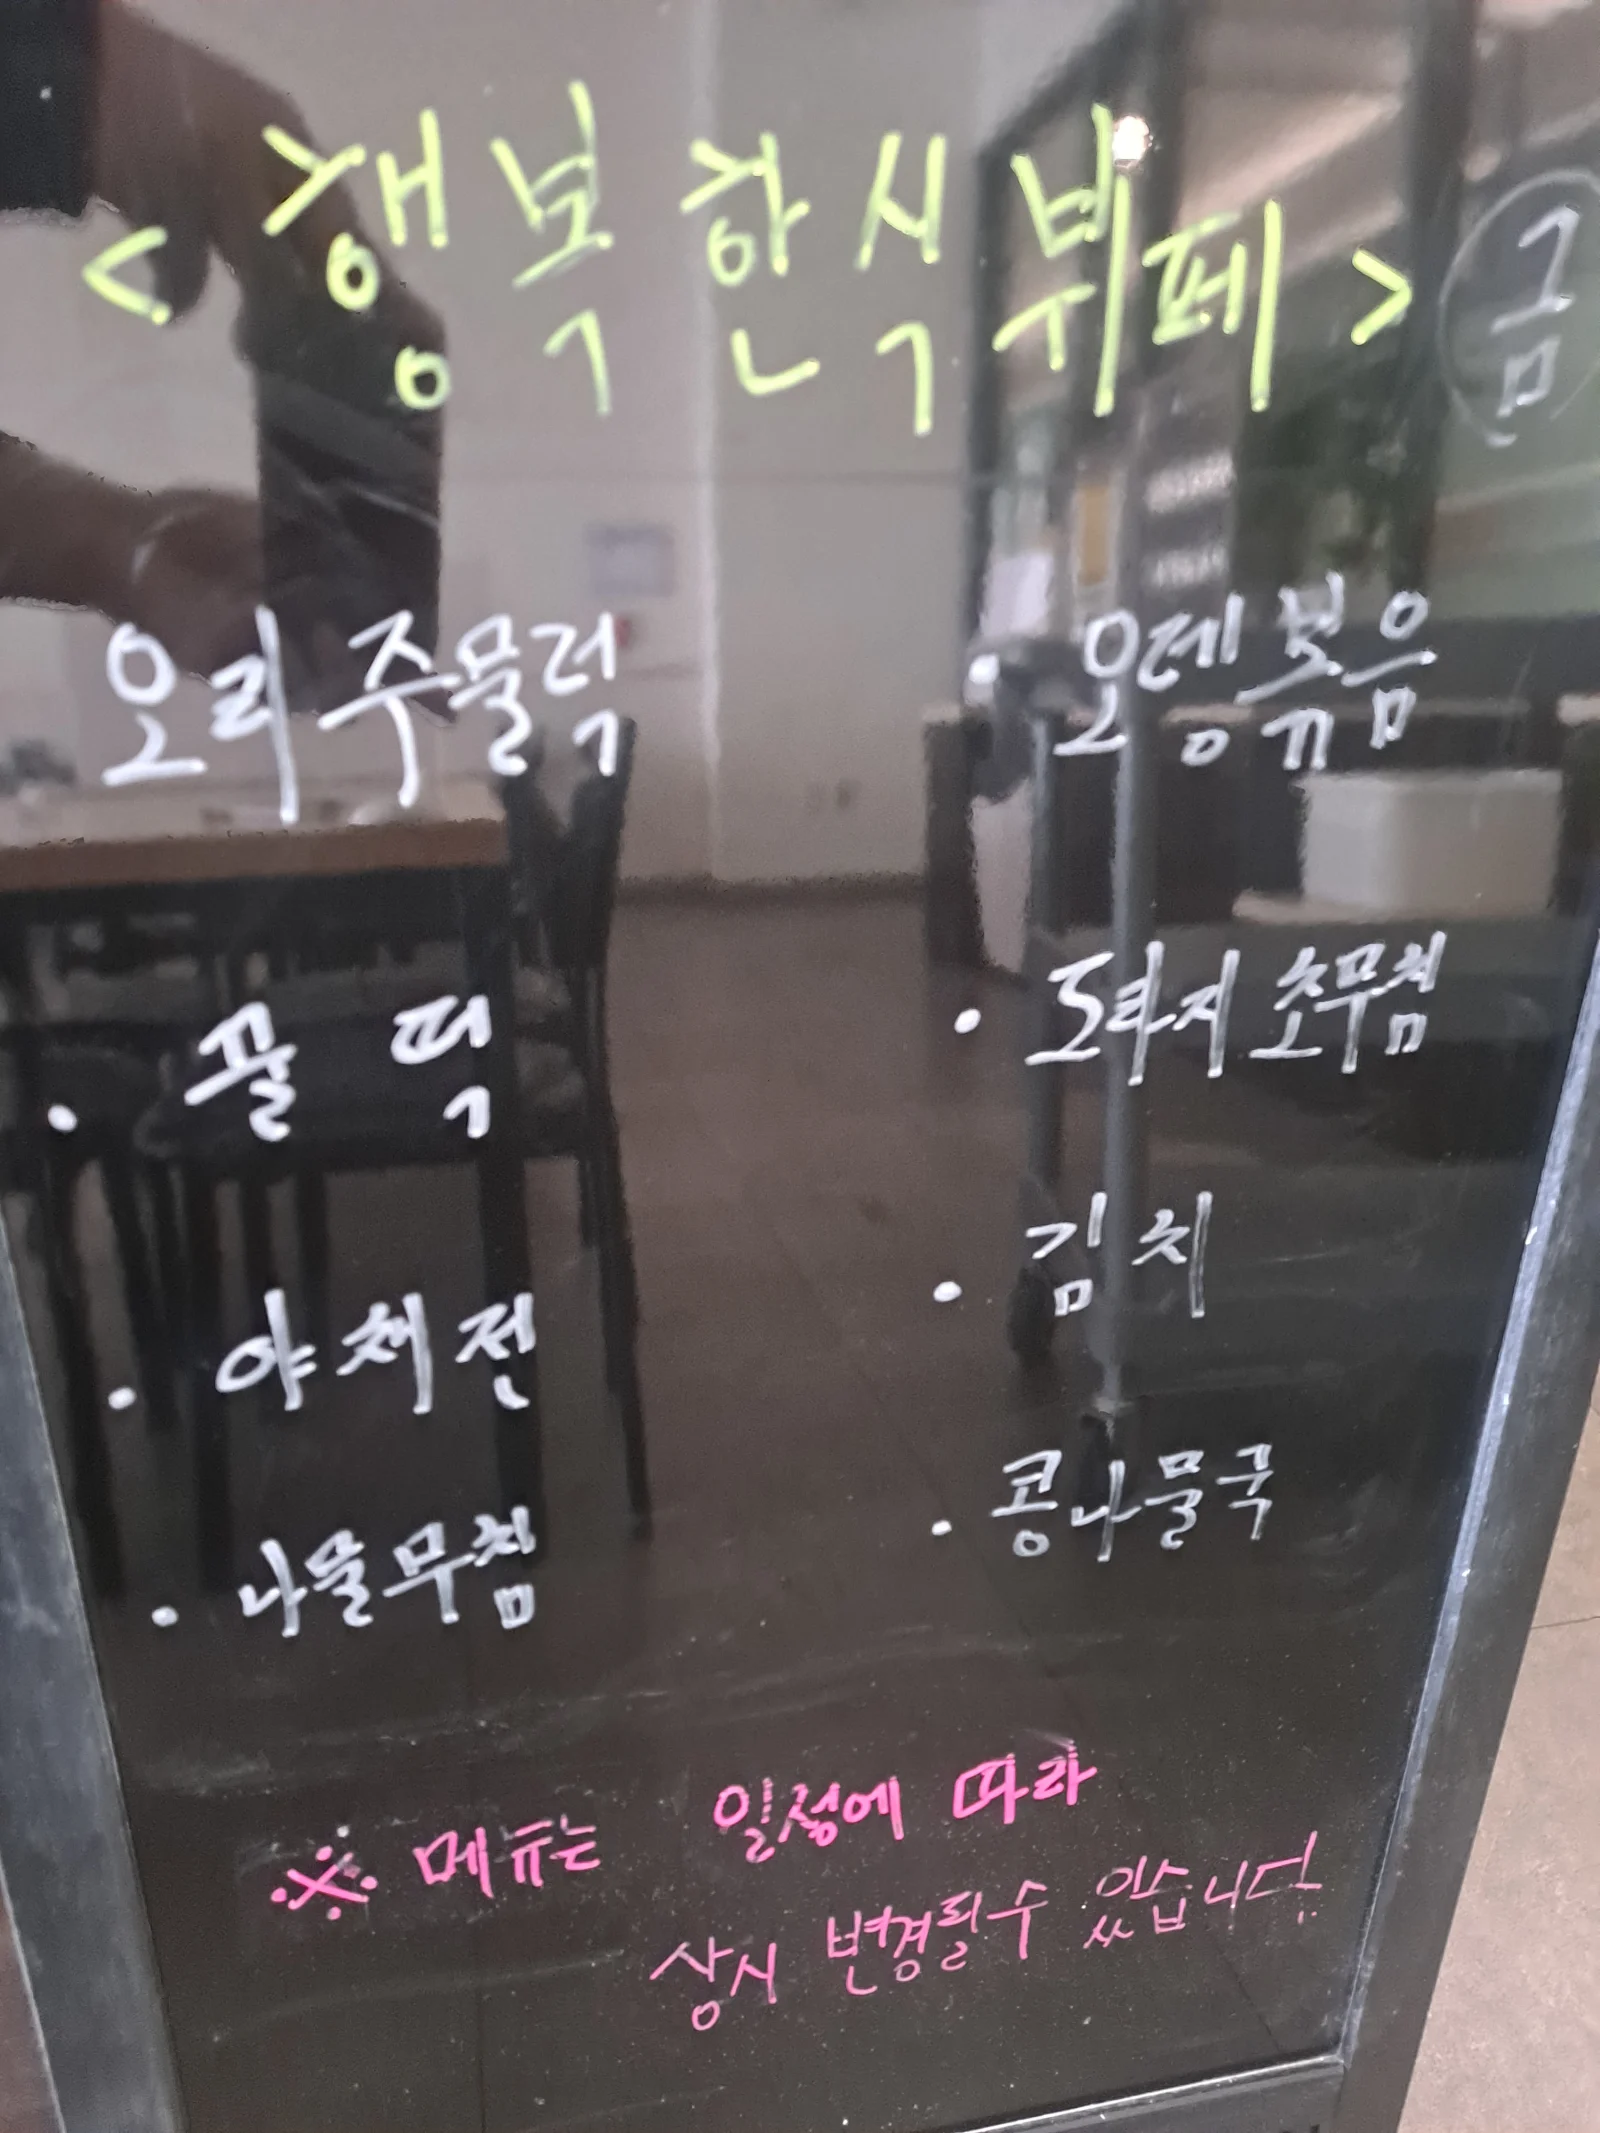 < 행복한식뷔페 > 금
오리 주물럭
· 꿀떡
· 야채전
· 나물무침
· 오뎅볶음
· 도라지 초무침
· 김치
· 콩나물국
※ 메뉴는 일정에 따라
상시 변경될수 있습니다.